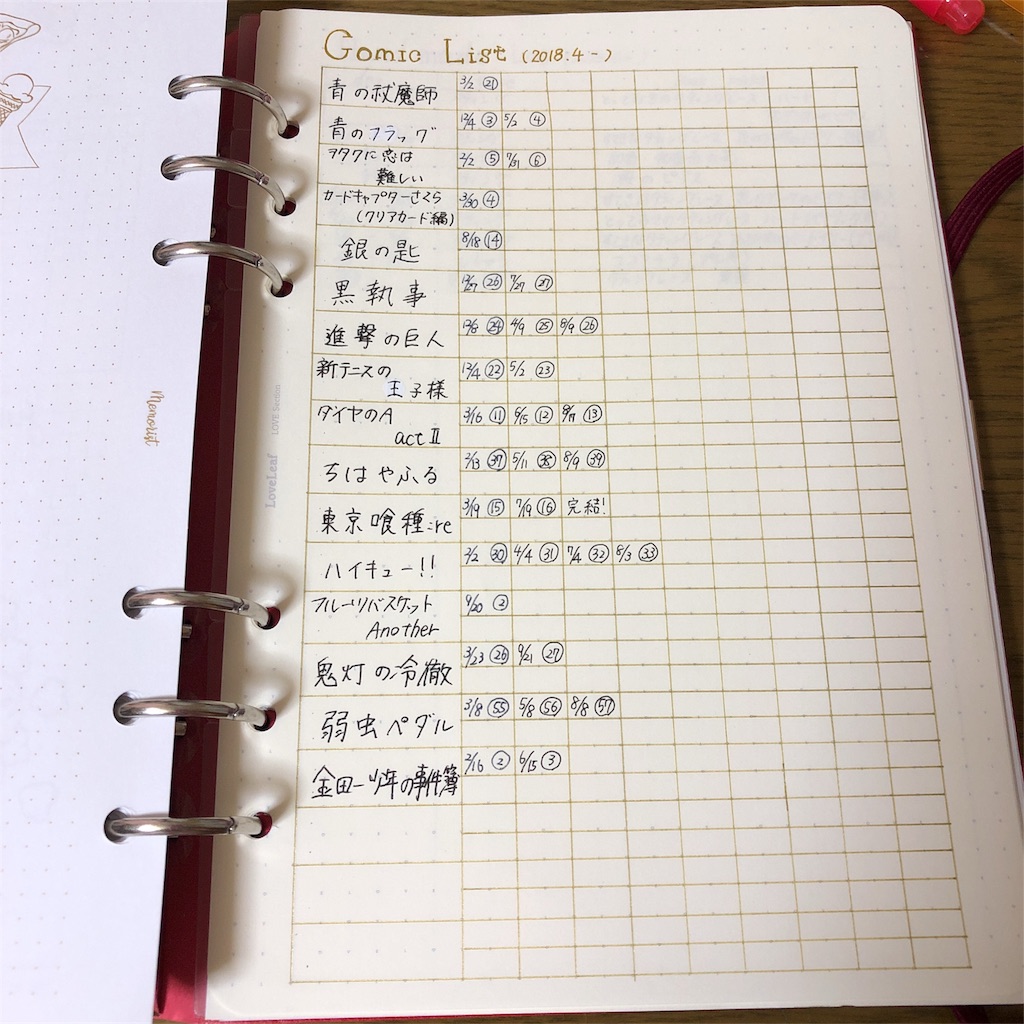 Comic List (2018.4-)
青の祓魔師 3/2 ㉑
青のフラッグ 12/4 ③ 5/2 ④
ヲタクに恋は 2/2 ⑤ 7/31 ⑥
難しい
カードキャプターさくら 3/30 ④
(クリアカード編)
銀の匙 8/18 ⑭
黒執事 12/27 ㉖ 7/27 ㉗
進撃の巨人 12/8 ㉔ 4/9 ㉕ 8/9 ㉖
新テニスの 12/4 ㉒ 5/2 ㉓
王子様
ダイヤのA 3/16 ⑪ 5/15 ⑫ 8/17 ⑬
act II
ちはやふる 2/13 ㊲ 5/11 ㊳ 8/9 ㊴
東京喰種:re 3/19 ⑮ 7/19 ⑯ 完結!
ハイキュー!! 2/2 ㉚ 4/4 ㉛ 7/4 ㉜ 8/3 ㉝
フルーツバスケット 9/20 ②
Another
鬼灯の冷徹 3/23 ㉖ 9/21 ㉗
弱虫ペダル 3/8 55 5/8 56 8/8 57
金田一少年の事件簿 2/16 ② 6/15 ③
Memorist
LoveLeaf LOVE Section